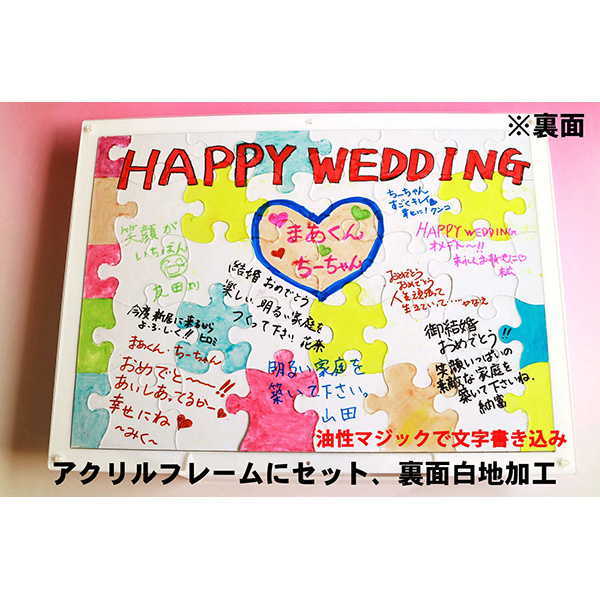 ※裏面
HAPPY WEDDING
ちーちゃん
すごくキレイ
幸せに！クンコ
まあくん
ちーちゃん
HAPPY WEDDING
オメデト〜!!
笑顔が
いちばん
友田
結婚おめでとう
楽しい、明るい家庭を
つくって下さい 花奈
おめでとう
おめでとう
人生頑張って
生きていて…
今度新居に来るから
よ・ろ・し・く!! ヒロミ
御結婚
おめでとう!!
笑顔いっぱいの
素敵な家庭を
築いて下さいね.
納富
まあくん・ちーちゃん
おめでと〜〜!!
あいしあってるかー
幸せにね
〜みく〜
明るい家庭を
築いて下さい。
山田
油性マジックで文字書き込み
アクリルフレームにセット、裏面白地加工